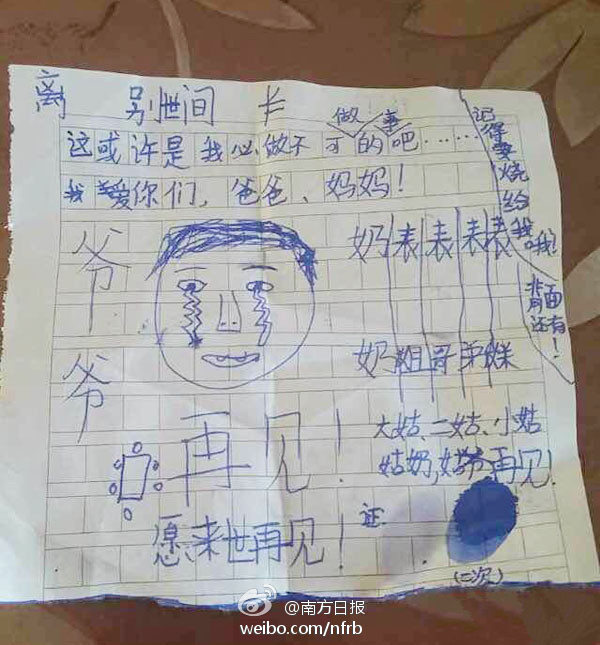 离 别世间
做事
这或许是我必做不可的吧……
我爱你们,爸爸、妈妈!
记得要烧给我哦!
背面还有!
爷爷
奶奶
表姐
表哥
表弟
表妹
再见!
大姑、二姑、小姑
姑奶,姑爷再见!
愿来世再见!
证
(二次)
@南方日报
weibo.com/nfrb